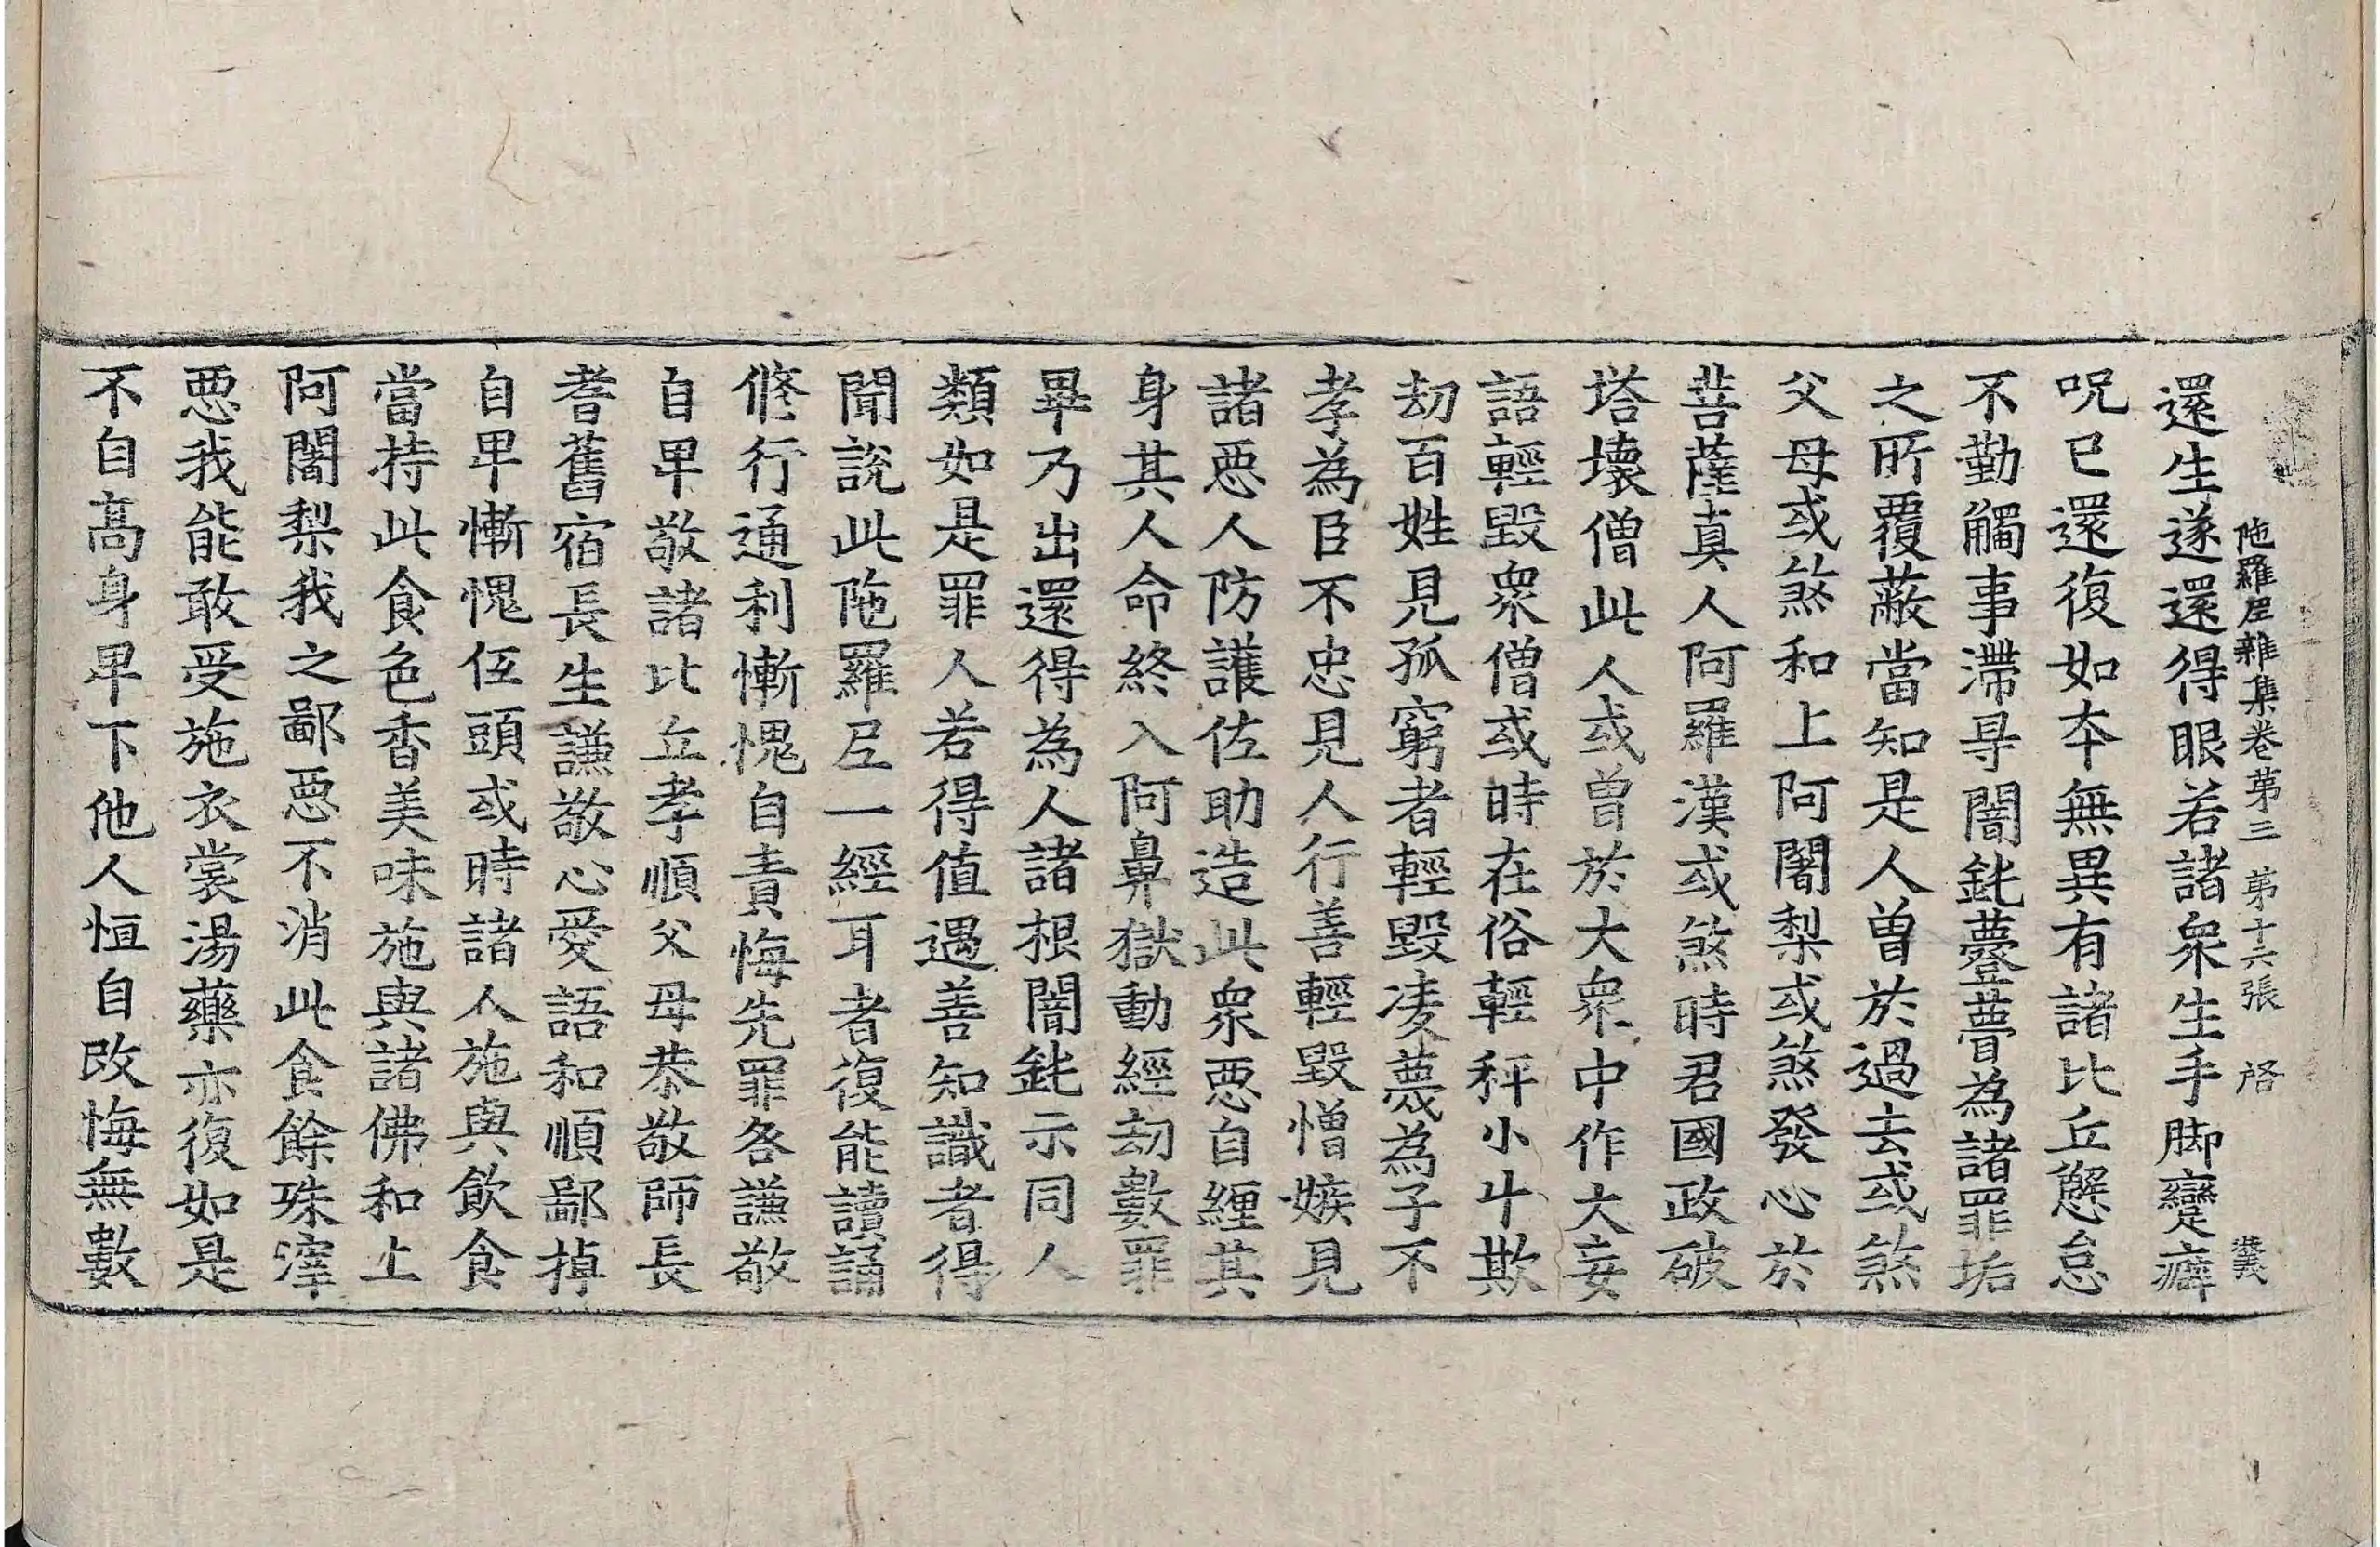 陁羅尼雜集卷第三 第十六張 啓
還生遂還得眼若諸衆生手脚躄癖
呪已還復如夲無異有諸比丘懈怠
不勤觸事滯㝵闇鈍薹瞢為諸罪垢
之所覆蔽當知是人曾於過去或煞
父母或煞和上阿闍梨或煞發心於
菩薩真人阿羅漢或煞時君國政破
塔壞僧此人或曾於大衆中作大妄
語輕毀衆僧或時在俗輕秤小斗欺
劫百姓見孤窮者輕毀凌蔑為子不
孝為臣不忠見人行善輕毀憎嫉見
諸惡人防護佐助造此衆惡自纏其
身其人命終入阿鼻獄動經劫數罪
畢乃出還得為人諸根闇鈍示同人
類如是罪人若得值遇善知識者得
聞說此陁羅尼一經耳者復能讀誦
修行通利慚愧自責悔先罪咎謙敬
自卑敬諸比丘孝順父母恭敬師長
耆舊宿長生謙敬心愛語和順鄙掉
自卑慚愧伍頭或時諸人施與飲食
當持此食色香美味施與諸佛和上
阿闍梨我之鄙惡不消此食餘殊滓
惡我能敢受施衣裳湯藥亦復如是
不自高身卑下他人恒自改悔無數